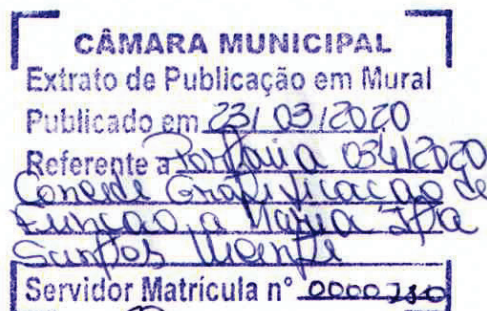 CÂMARA MUNICIPAL
Extrato de Publicação em Mural
Publicado em 23/03/2020
Referente a Portaria 034/2020
Concede Gratificacao de
Funcao a Maria
Santos
Servidor Matrícula nº